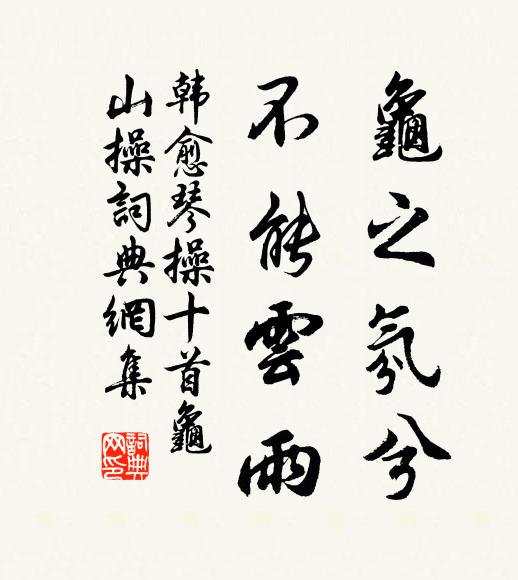 龜之氛兮
不能雲雨
韩愈琴操十首龜
山操詞典網集
詞典网印